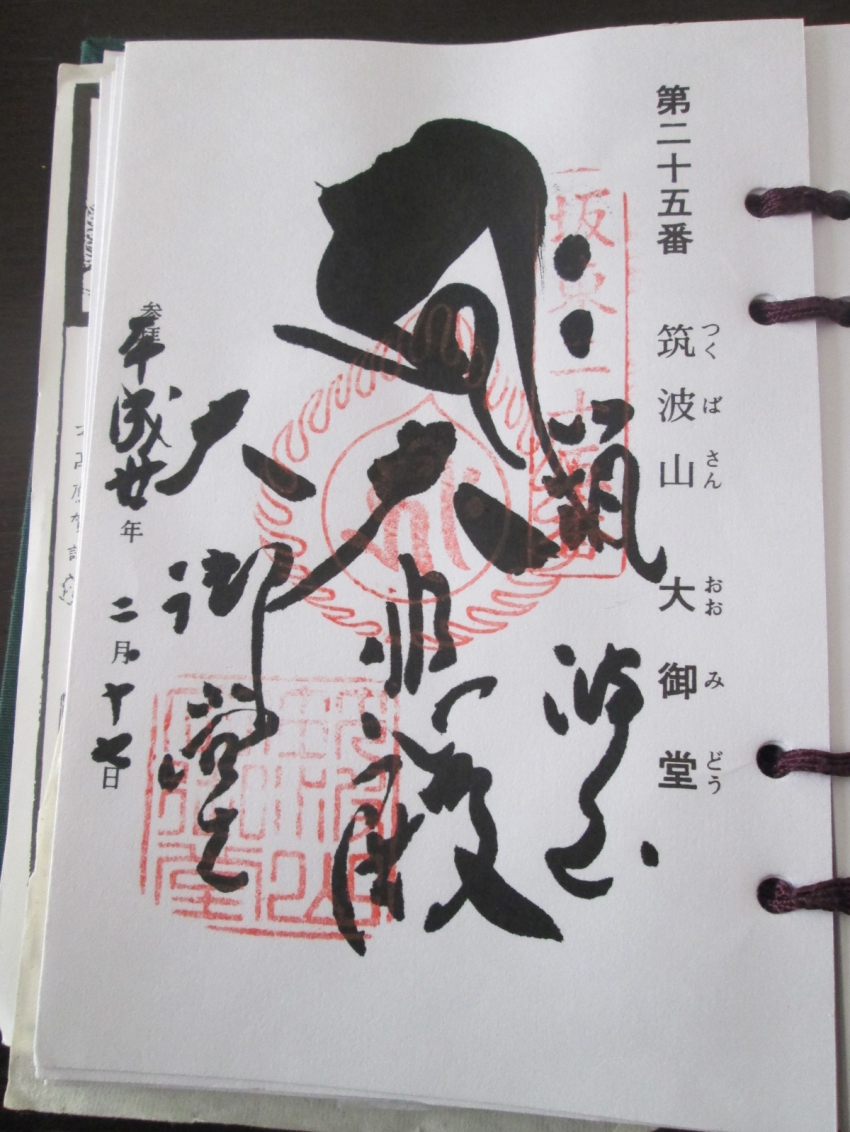 第二十五番 筑波山 大御堂
つくばさん おおみどう
坂東二十五番
筑波山
大悲殿
大御堂
参拝 平成廿年 二月十七日